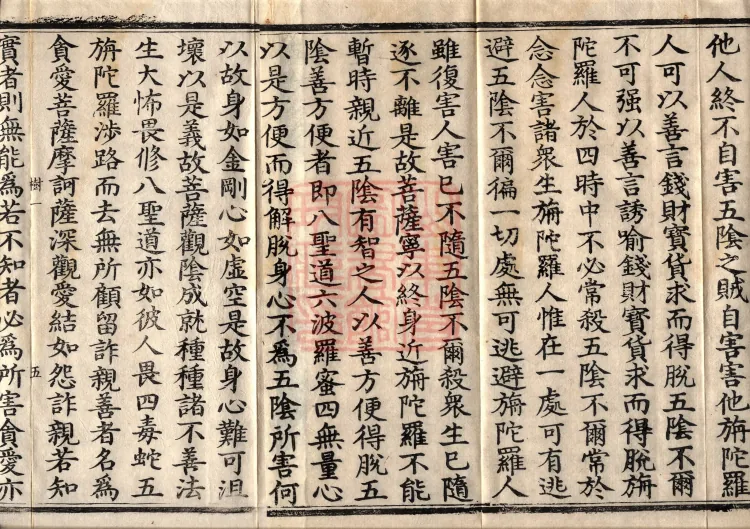 他人終不自害五陰之賊自害害他旃陀羅
人可以善言錢財寶貨求而得脫五陰不爾
不可强以善言誘喻錢財寶貨求而得脫旃
陀羅人於四時中不必常殺五陰不爾常於
念念害諸衆生旃陀羅人惟在一處可有逃
避五陰不爾徧一切處無可逃避旃陀羅人
雖復害人害已不隨五陰不爾殺衆生已隨
逐不離是故菩薩寧以終身近旃陀羅不能
暫時親近五陰有智之人以善方便得脫五
陰善方便者即八聖道六波羅蜜四無量心
以是方便而得解脫身心不爲五陰所害何
以故身如金剛心如虛空是故身心難可沮
壞以是義故菩薩觀陰成就種種諸不善法
生大怖畏修八聖道亦如彼人畏四毒蛇五
旃陀羅涉路而去無所顧留詐親善者名爲
貪愛菩薩摩訶薩深觀愛結如怨詐親若知
樹一
五
實者則無能爲若不知者必爲所害貪愛亦